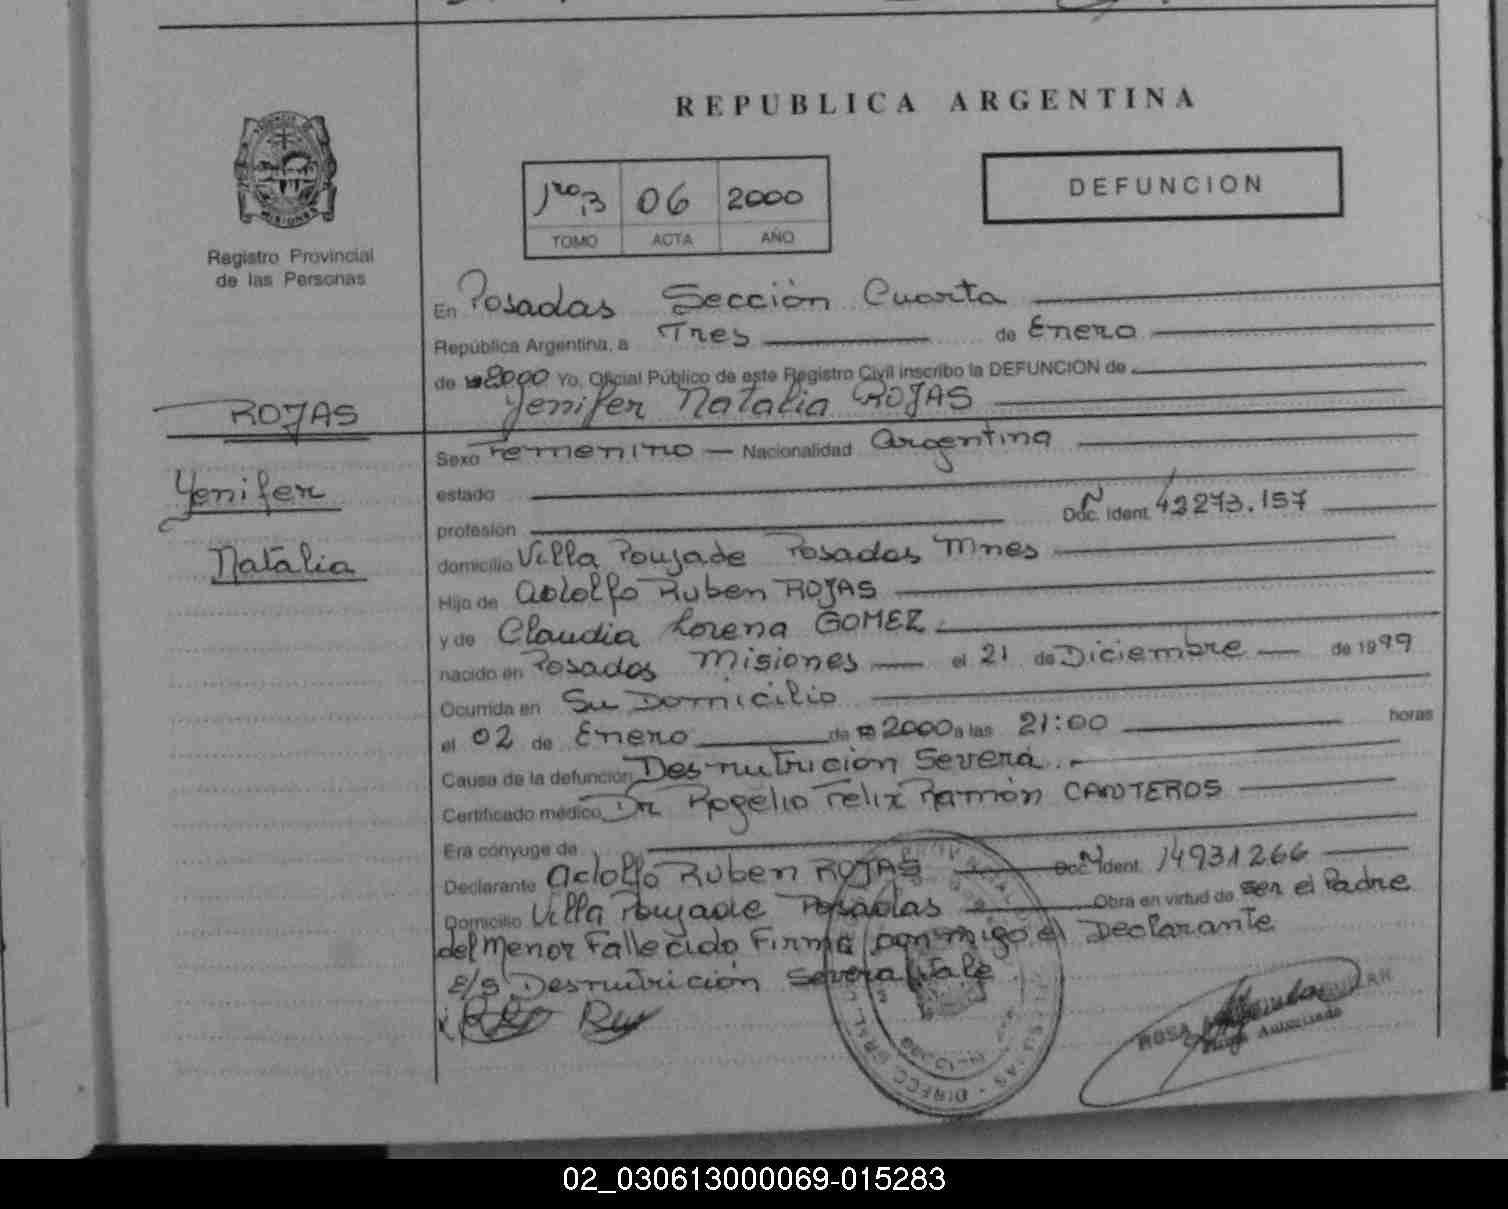 REPUBLICA ARGENTINA
DEFUNCION
1ro B 06 2000
TOMO ACTA AÑO
MISIONES
Registro Provincial
de las Personas
ROJAS
Yenifer
Natalia
En Posadas Sección Cuarta
República Argentina, a Tres de Enero
de 2000 Yo, Oficial Público de este Registro Civil inscribo la DEFUNCION de
Yenifer Natalia ROJAS
Sexo Femenino Nacionalidad Argentina
estado
profesión Doc. Ident. 42273.157
domicilio Villa Poujade Posadas Mnes
Hijo de Adolfo Ruben ROJAS
y de Claudia Lorena GOMEZ.
nacido en Posadas Misiones el 21 de Diciembre de 1999
Ocurrida en Su Domicilio
el 02 de Enero de 2000 a las 21:00 horas
Causa de la defunción Desnutrición Severa.
Certificado médico Dr Rogelio Felix Ramón CANTEROS
Era cónyuge de
Declarante Adolfo Ruben ROJAS Doc. Ident. 14931266
Domicilio Villa Poujade Posadas Obra en virtud de ser el Padre
del Menor Fallecido Firma conmigo el Declarante
E/S Desnutrición Severa Vale
ROSA
Autorizado
02_030613000069-015283